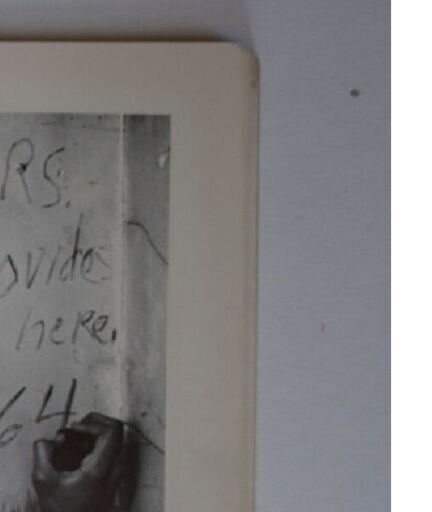 RS.
ovides
here.
64